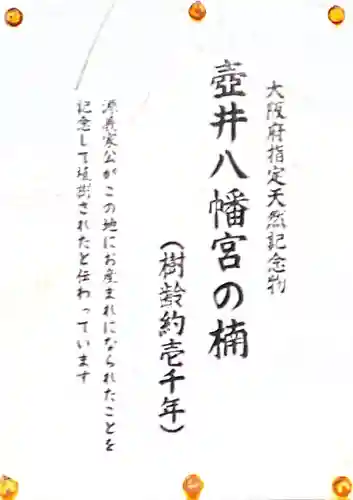 大阪府指定天然記念物
壺井八幡宮の楠
（樹齢約壱千年）
源義家公がこの地にお産まれになられたことを
記念して植樹されたと伝わっています